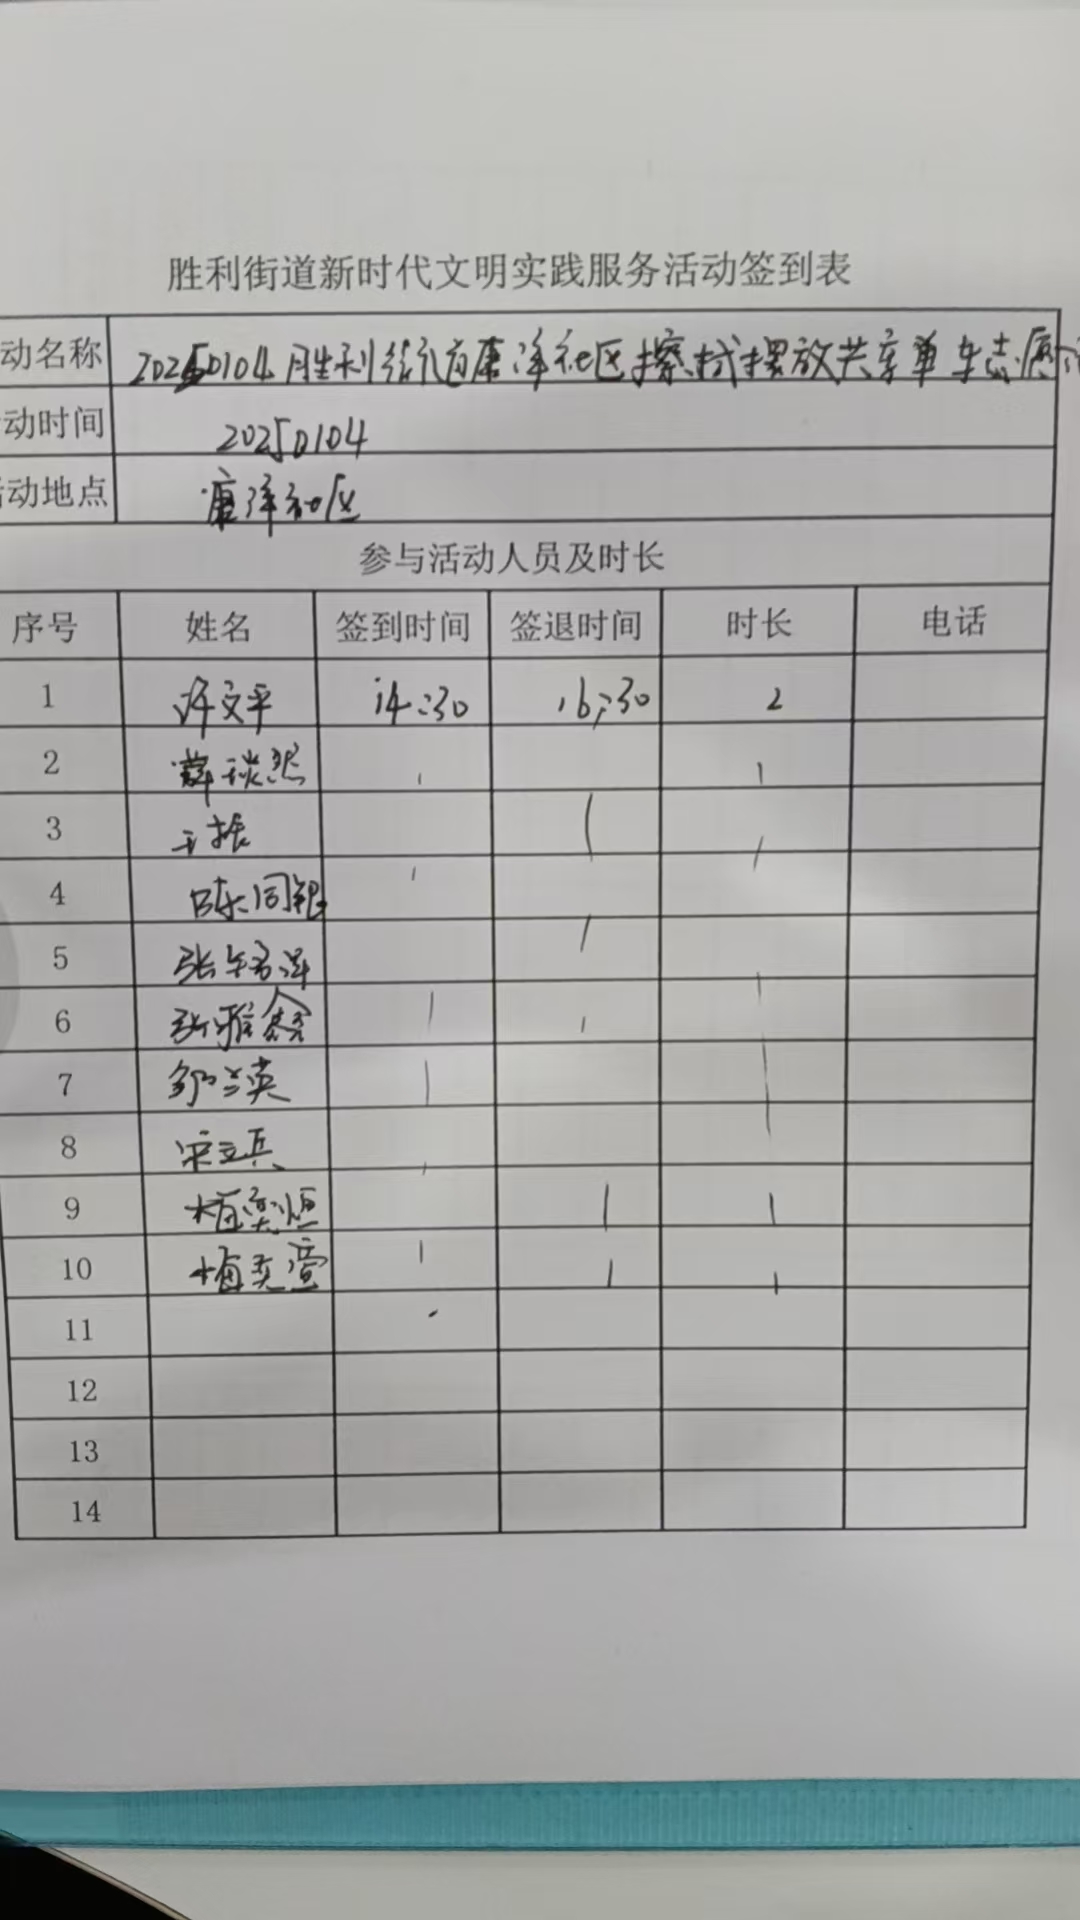 胜利街道新时代文明实践服务活动签到表
动名称 20250104胜利街道康泽社区擦拭摆放共享单车志愿
动时间 20250104
活动地点 康泽社区
参与活动人员及时长
序号 姓名 签到时间 签退时间 时长 电话
1 许文平 14:30 16:30 2
2 薛琰
3 王振
4 陈同银
5 张
6 张雅鑫
7 邹兰英
8 宋立兵
9 植奕恒
10 梅奕萱
11
12
13
14